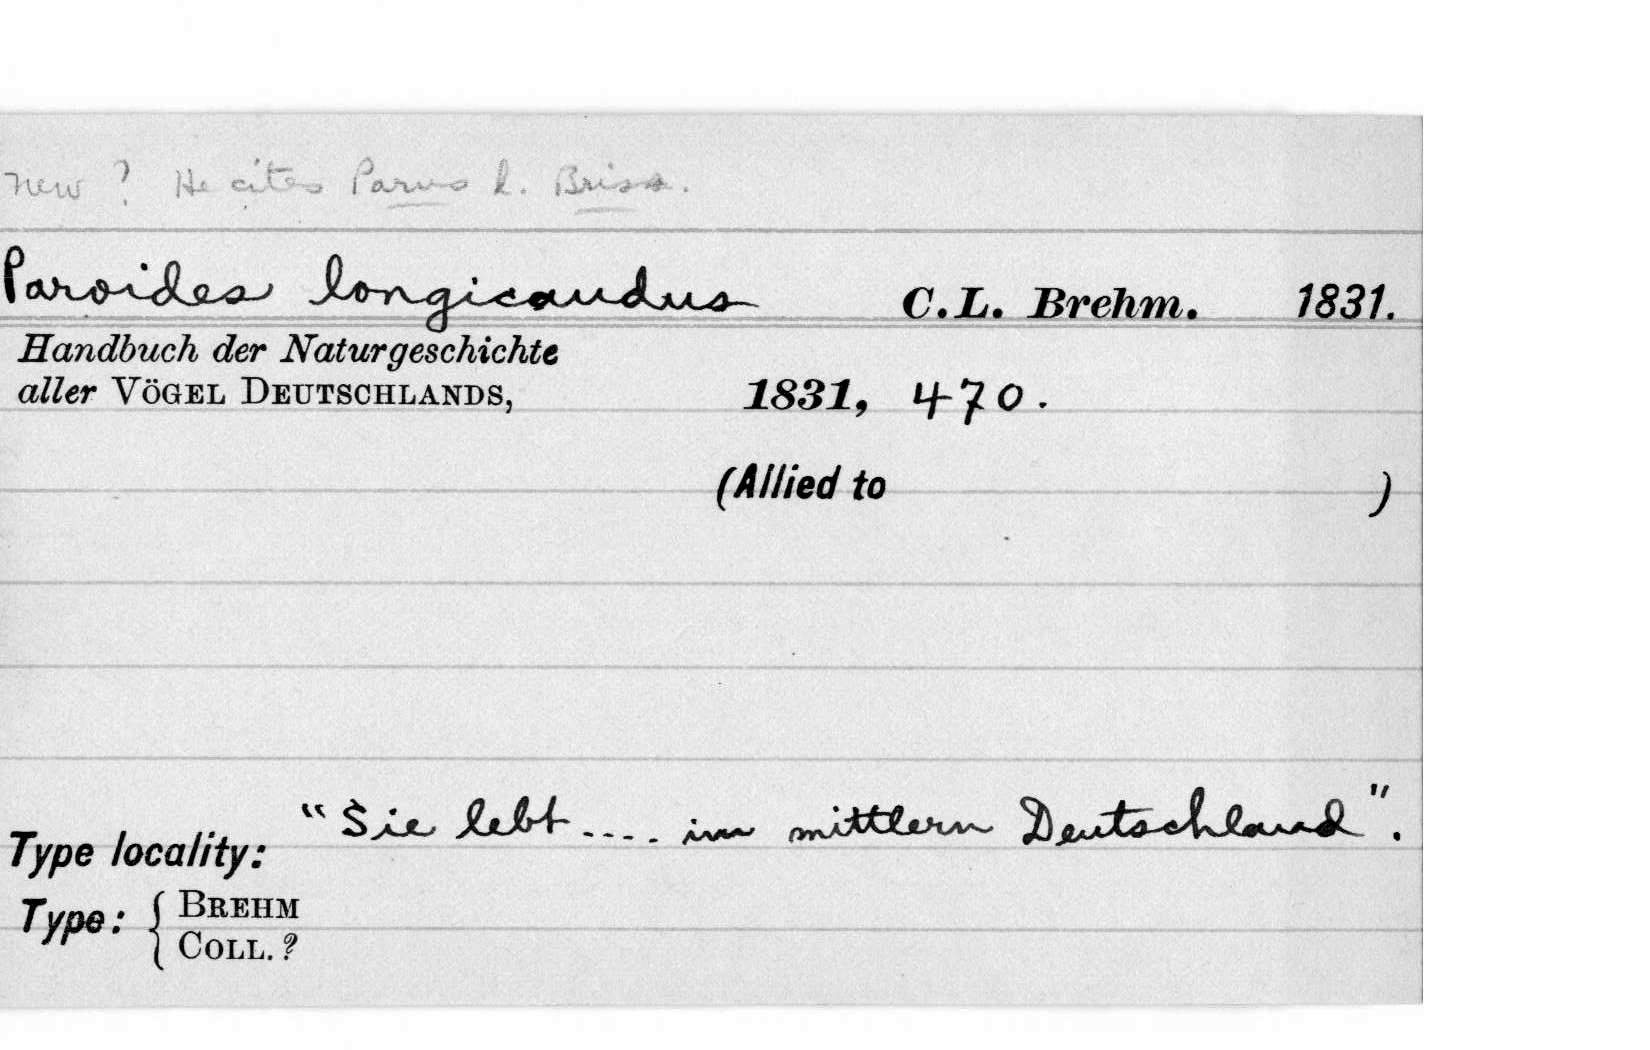 New? He cites Parus l. Briss.
Paroides longicaudus C.L. Brehm. 1831.
Handbuch der Naturgeschichte
aller VÖGEL DEUTSCHLANDS, 1831, 470.
(Allied to )
"Sie lebt .... im mittlern Deutschland".
Type locality:
Type: { BREHM
COLL. ?